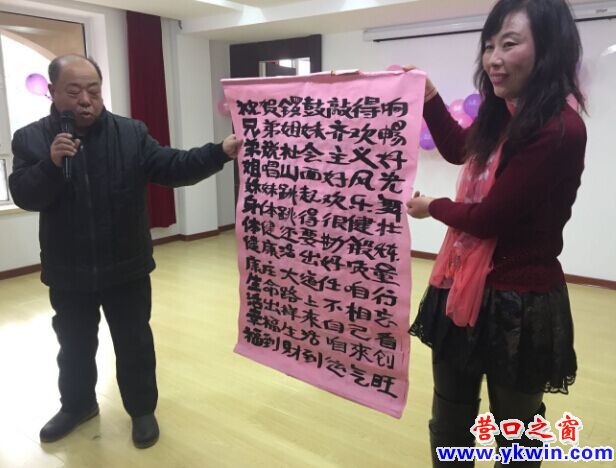 祝贺锣鼓敲得响
兄弟姐妹齐欢暢
弟说社会主义好
姐唱山面好风光
妹妹跳起欢乐舞
身体跳得很健壮
体健还要勤
健康活出好质量
康庄大道任咱行
生命路上不相忘
活出样来自己看
幸福生活咱来创
福到财到运气旺
营口之窗
www.ykwin.com